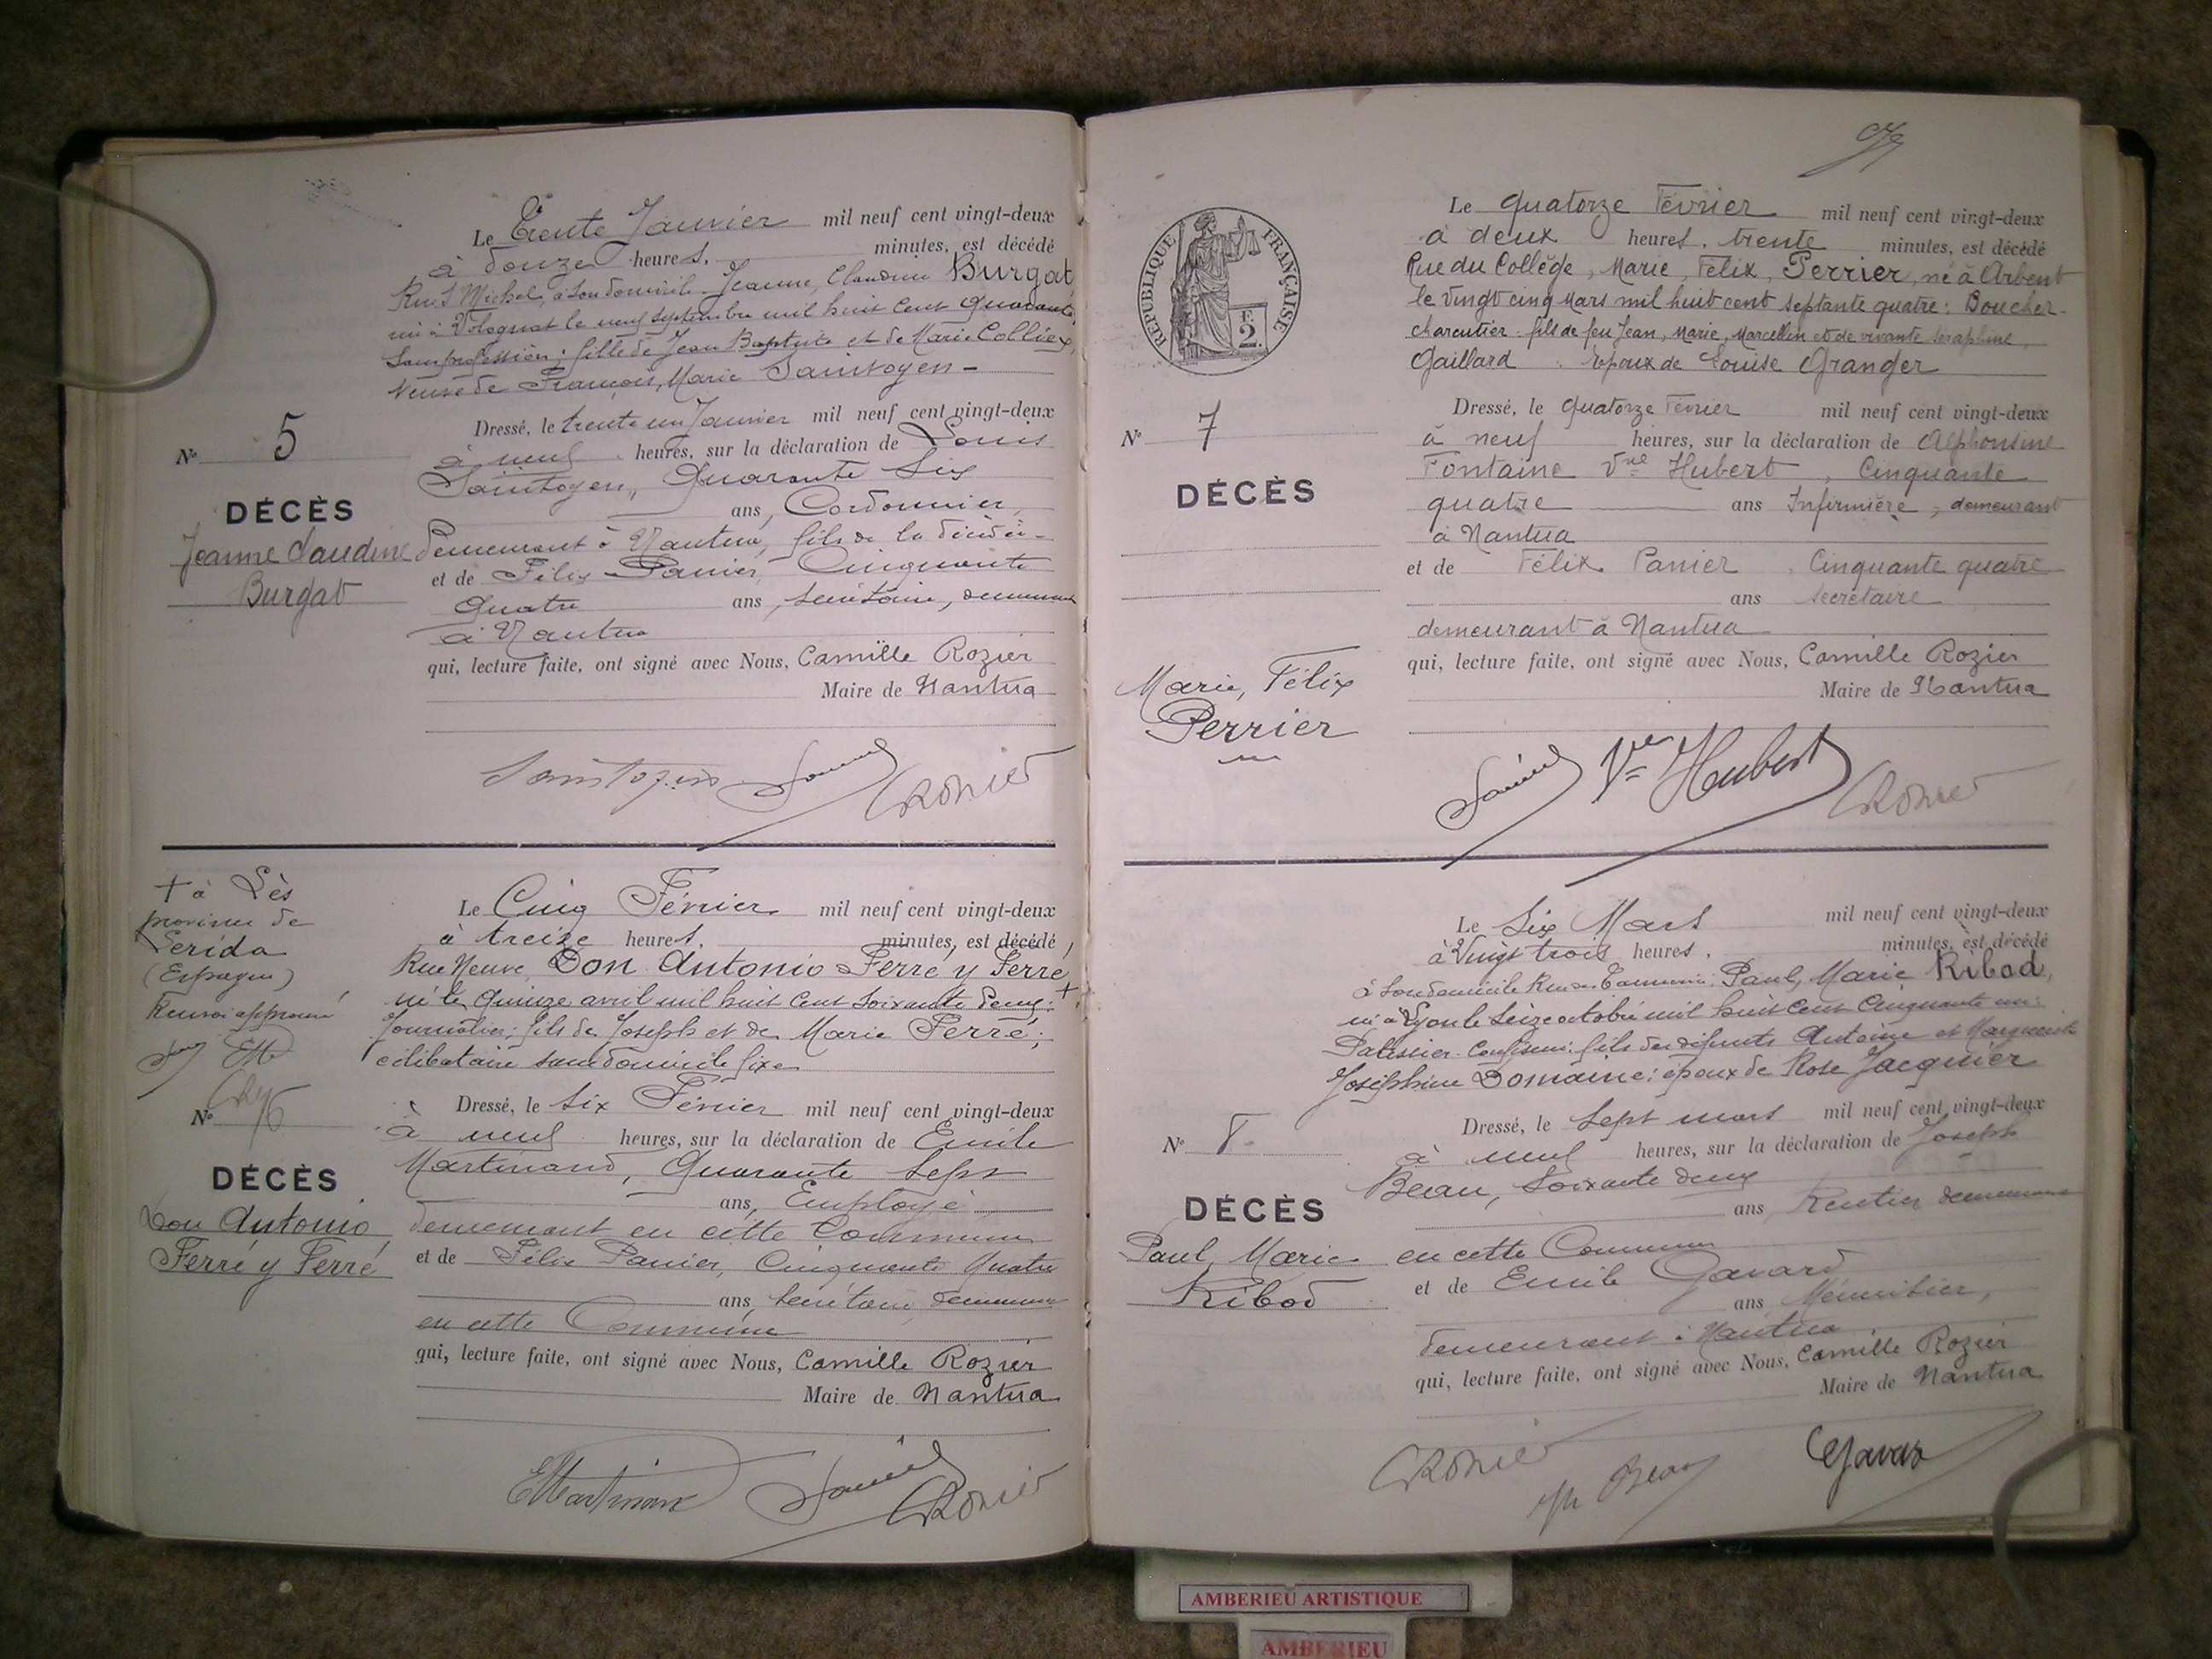 Le Trente Janvier mil neuf cent vingt-deux
à douze heures, minutes, est décédé
Rue St Michel, à son domicile Jeanne, Claudine Burgat
née à Volognat le neuf septembre mil huit cent quarante,
sans profession; fille de Jean Baptiste et de Marie Colliex,
veuve de François, Marie Saintoyen -
Dressé, le trente un Janvier mil neuf cent vingt-deux
à neuf heures, sur la déclaration de Louis
Saintoyen, Quarante Six
ans, Cordonnier,
demeurant à Nantua, fils de la
et de Félix Panier, Cinquante
Quatre ans, secrétaire, demeurant
à Nantua
qui, lecture faite, ont signé avec Nous, Camille Rozier
Maire de Nantua
N° 5
DÉCÈS
Jeanne Claudine
Burgat
Saintoyen Panier CRozier
+ à Lès
province de
Lerida
(Espagne)
Renvoi approuvé
EM
CR
N° 6
DÉCÈS
Don Antonio
Ferré y Ferré
Le Cinq Février mil neuf cent vingt-deux
à treize heures, minutes, est décédé,
Rue Neuve, Don Antonio Ferré y Ferré
né le Quinze avril mil huit cent soixante deux: +
Journalier; fils de Joseph et de Marie Ferré;
célibataire sans domicile fixe
Dressé, le six Février mil neuf cent vingt-deux
à neuf heures, sur la déclaration de Emile
Martinand, Quarante Sept
ans, Employé
demeurant en cette Commune
et de Félix Panier, Cinquante Quatre
ans, secrétaire, demeurant
en cette Commune
qui, lecture faite, ont signé avec Nous, Camille Rozier
Maire de Nantua
EMartinand Panier CRozier
97
RÉPUBLIQUE FRANÇAISE
F.
2.
Le Quatorze Février mil neuf cent vingt-deux
à deux heures, trente minutes, est décédé
Rue du Collège, Marie, Félix, Perrier, né à Arbent
le vingt cinq Mars mil huit cent septante quatre: Boucher-
charcutier: fils de feu Jean, Marie, Marcellin et de vivante Séraphine,
Gaillard . Epoux de Louise Granger
Dressé, le Quatorze Février mil neuf cent vingt-deux
à neuf heures, sur la déclaration de Alphonsine
Fontaine Vve Hubert, Cinquante
quatre ans Infirmière, demeurant
à Nantua
et de Félix Panier . Cinquante quatre
ans secrétaire
demeurant à Nantua
qui, lecture faite, ont signé avec Nous, Camille Rozier
Maire de Nantua
N° 7
DÉCÈS
Marie, Félix
Perrier
Panier Ve Hubert CRozier
Le Six Mars mil neuf cent vingt-deux
à Vingt trois heures, minutes, est décédé
à son domicile Rue Paul, Marie Ribod,
né à Lyon le seize octobre mil huit cent cinquante un:
Patissier-Confiseur: fils des défunts Antoine et Marguerite
Joséphine Domaine; époux de Rose Jacquier
Dressé, le Sept mars mil neuf cent vingt-deux
à neuf heures, sur la déclaration de Joseph
Beau, Soixante deux
ans Rentier demeurant
en cette Commune
et de Emile Gavard
ans Menuisier,
demeurant à Nantua
qui, lecture faite, ont signé avec Nous, Camille Rozier
Maire de Nantua
N° 8.
DÉCÈS
Paul, Marie
Ribod
CRozier Jh Beau EGavard
AMBERIEU ARTISTIQUE
AMBERIEU